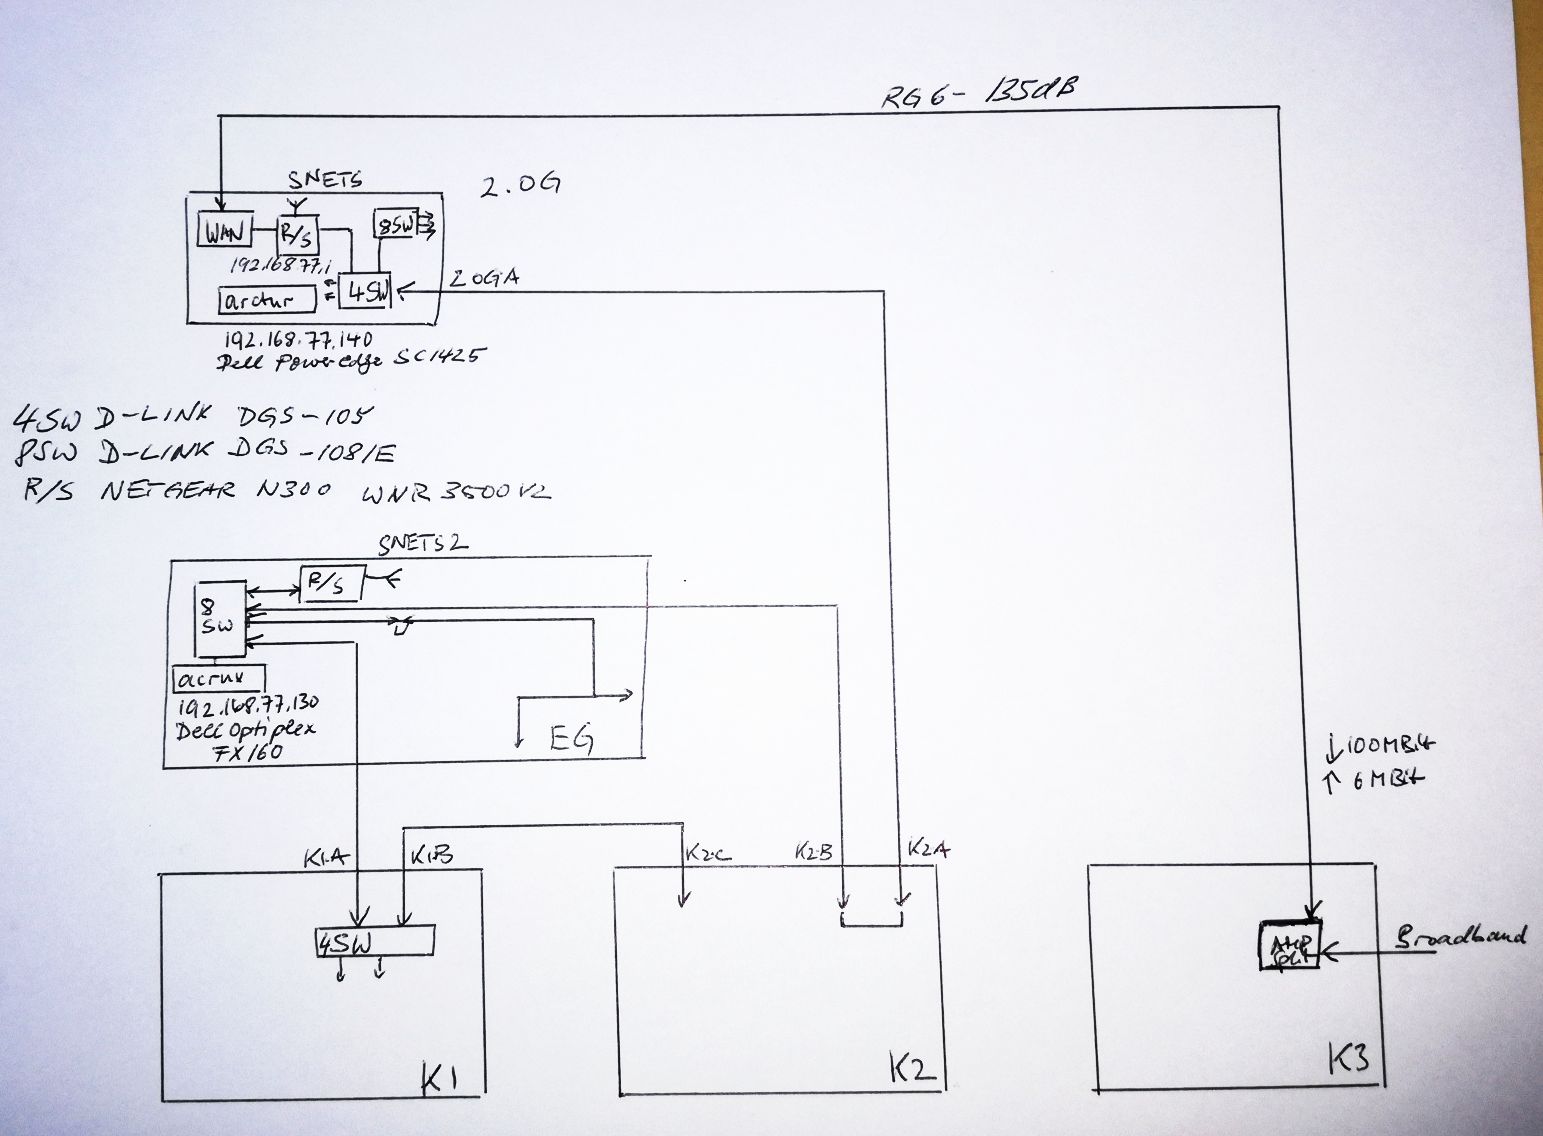 RG6- 135dB
SNETS
2.OG
WAN
R/S
8SW
192.168.77.1
4SW
2OGA
arctur
192.168.77.140
Dell PowerEdge SC1425
4SW D-LINK DGS-105
8SW D-LINK DGS-108/E
R/S NETGEAR N300 WNR3500V2
SNETS2
R/S
8
SW
acrux
192.168.77.130
Dell Optiplex
FX160
EG
↓100MBit
↑ 6MBit
K1.A
K1.B
K2.C
K2.B
K2.A
4SW
AMP
Split
Broadband
K1
K2
K3